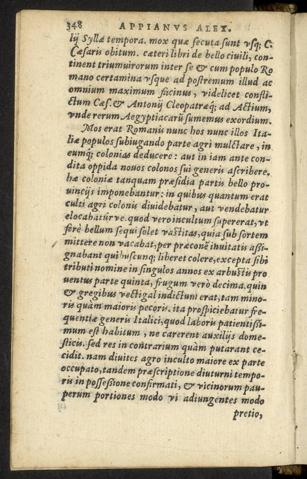 348 APPIANVS ALEX.
lij Syllæ tempora. mox quæ secuta sunt vsq; C.
Cæsaris obitum. cæteri libri de bello ciuili, con-
tinent triumuirorum inter se & cum populo Ro
mano certamina vsque ad postremum illud ac
omnium maximum facinus, videlicet confli-
ctum Cæs. & Antonij Cleopatræq; ad Actium,
vnde rerum Aegyptiacarũ sumemus exordium.
Mos erat Romanis nunc hos nunc illos Ita-
liæ populos subiugando parte agri mulctare, in
eumq; colonias deducere: aut in iam ante con-
dita oppida nouos colonos sui generis ascribere.
hæ coloniæ tanquam præsidia partis bello pro-
uincijs imponebantur: in quibus quantum erat
culti agri colonis diuidebatur, aut vendebatur
elocabatúrve. quod vero incultum supererat, vt
ferè bellum sequi solet vastitas, quia sub sortem
mittere non vacabat, per præconẽ inuitatis assi-
gnabant qui uscunq; liberet colere, excepta sibi
tributi nomine in singulos annos ex arbustis pro
uentus parte quinta, frugum verò decima. quin
& gregibus vectigal indictum erat, tam mino-
ris quàm maioris pecoris. ita prospiciebatur fre-
quentiæ generis Italici, quod laboris patientissi-
mum est habitum, ne carerent auxilijs dome-
sticis. sed res in contrarium quàm putarant ce-
cidit. nam diuites agro inculto maiore ex parte
occupato, tandem præscriptione diuturni tempo-
ris in possessione confirmati, & vicinorum pau-
perum portiones modo vi adiungentes modo
pretio,